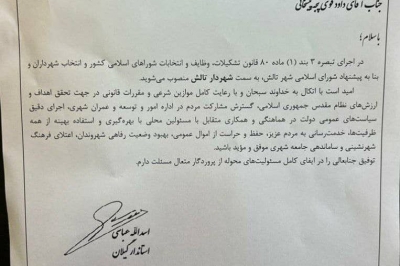 جناب آقای داود قوی پنجه
با سلام؛
در اجرای تبصره ۳ بند (۱) ماده ۸۰ قانون تشکیلات، وظایف و انتخابات شوراهای اسلامی کشور و انتخاب شهرداران و
بنا به پیشنهاد شورای اسلامی شهر تالش، به سمت شهردار تالش منصوب می‌شوید.
امید است با اتکال به خداوند سبحان و با رعایت کامل موازین شرعی و مقررات قانونی در جهت تحقق اهداف و
ارزش‌های نظام مقدس جمهوری اسلامی، گسترش مشارکت مردم در اداره امور و توسعه و عمران شهری، اجرای دقیق
سیاست‌های عمومی دولت در هماهنگی و همکاری متقابل با مسئولین محلی با بهره‌گیری و استفاده بهینه از همه
ظرفیت‌ها، خدمت‌رسانی به مردم عزیز، حفظ و حراست از اموال عمومی، بهبود وضعیت رفاهی شهروندان، اعتلای فرهنگ
شهرنشینی و ساماندهی جامعه شهری موفق و مؤید باشید.
توفیق جنابعالی را در ایفای کامل مسئولیت‌های محوله از پروردگار متعال مسئلت دارم.
اسدالله عباسی
استاندار گیلان